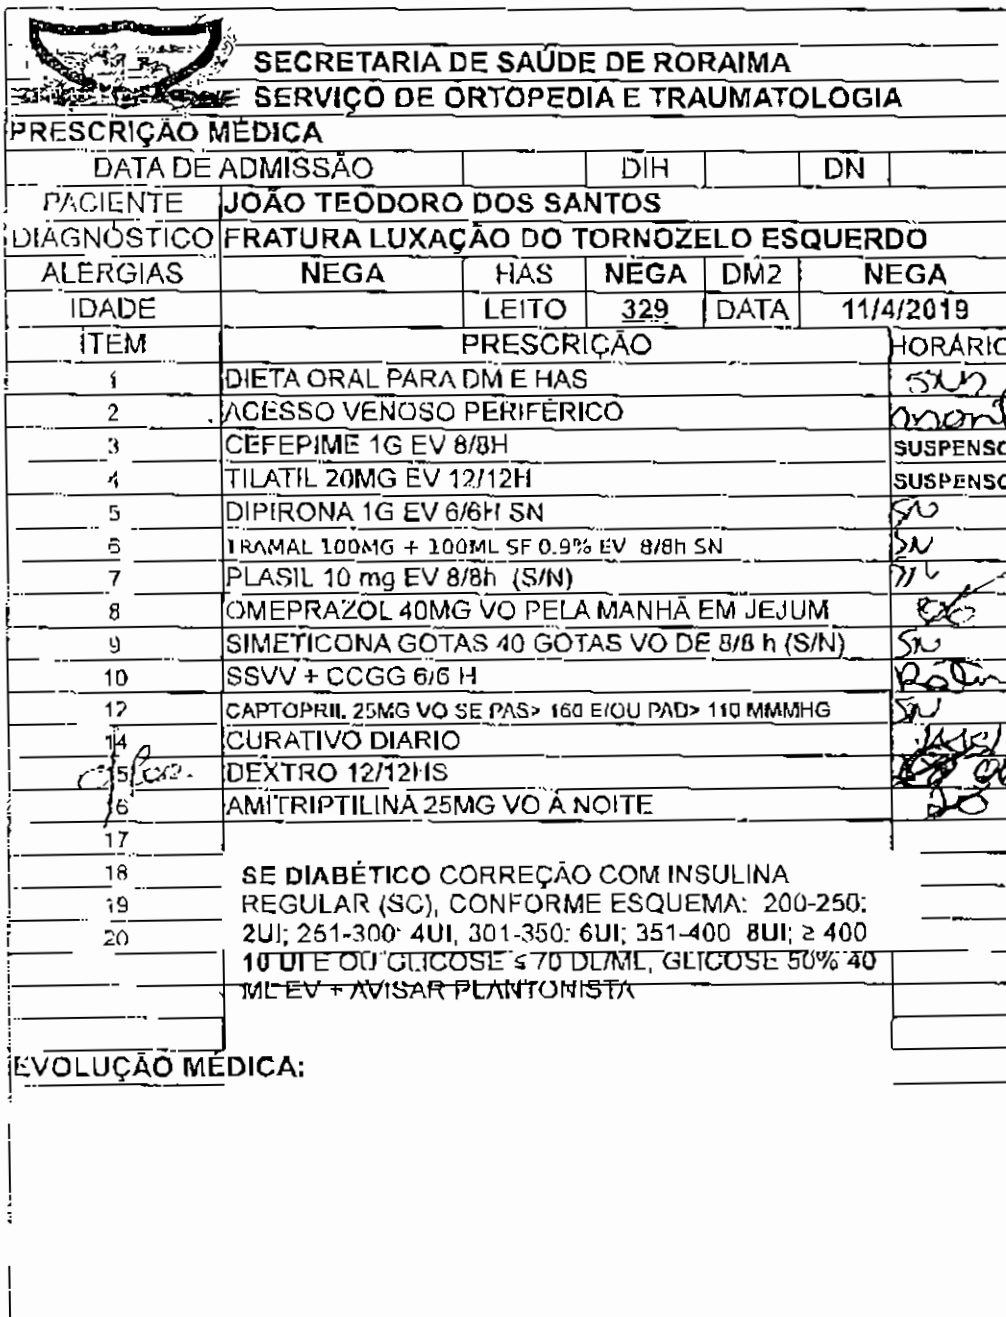 SECRETARIA DE SAÚDE DE RORAIMA
SERVIÇO DE ORTOPEDIA E TRAUMATOLOGIA
PRESCRIÇÃO MÉDICA
DATA DE ADMISSÃO DIH DN
PACIENTE JOÃO TEODORO DOS SANTOS
DIAGNÓSTICO FRATURA LUXAÇÃO DO TORNOZELO ESQUERDO
ALERGIAS NEGA HAS NEGA DM2 NEGA
IDADE LEITO 329 DATA 11/4/2019
ITEM PRESCRIÇÃO HORÁRIO
1 DIETA ORAL PARA DM E HAS
2 ACESSO VENOSO PERIFÉRICO
3 CEFEPIME 1G EV 8/8H SUSPENSO
4 TILATIL 20MG EV 12/12H SUSPENSO
5 DIPIRONA 1G EV 6/6H SN SN
6 TRAMAL 100MG + 100ML SF 0.9% EV 8/8h SN SN
7 PLASIL 10 mg EV 8/8h (S/N)
8 OMEPRAZOL 40MG VO PELA MANHÃ EM JEJUM
9 SIMETICONA GOTAS 40 GOTAS VO DE 8/8 h (S/N) SN
10 SSVV + CCGG 6/6 H
12 CAPTOPRIL 25MG VO SE PAS> 160 E/OU PAD> 110 MMMHG SN
14 CURATIVO DIARIO
15 DEXTRO 12/12HS
16 AMITRIPTILINA 25MG VO À NOITE 20
17
18 SE DIABÉTICO CORREÇÃO COM INSULINA
19 REGULAR (SC), CONFORME ESQUEMA: 200-250:
20 2UI; 251-300: 4UI, 301-350: 6UI; 351-400 8UI; ≥ 400
10 UI E OU GLICOSE ≤ 70 DL/ML, GLICOSE 50% 40
ML EV + AVISAR PLANTONISTA
EVOLUÇÃO MÉDICA: